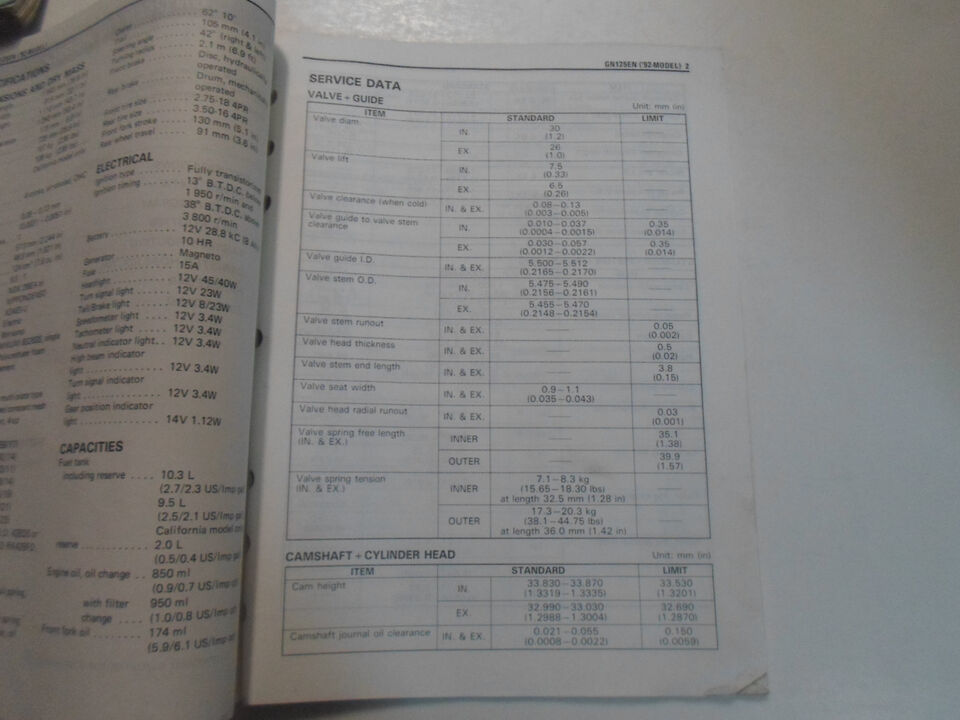 62° 10'
105 mm (4.1
42° (right &
Steering angle
Turning radius
2.1 m (6.9 ft)
Front brake
Disc, hydraulically
operated
Rear brake
Drum, mechanically
operated
Front tire size
2.75-18 4PR
Rear tire size
3.50-16 4PR
Front fork stroke
130 mm (5.1
Rear wheel travel
91 mm (3.6
ELECTRICAL
Ignition type
Fully transistorized
Ignition timing
13° B.T.D.C. below
1 950 r/min and
38° B.T.D.C. above
3 800 r/min
Battery
12V 28.8 kC (8
10 HR
Generator
Magneto
Fuse
15A
Headlight
12V 45/40W
Turn signal light
12V 23W
Tail/Brake light
12V 8/23W
Speedometer light
12V 3.4W
Tachometer light
12V 3.4W
Neutral indicator light
12V 3.4W
High beam indicator
light
12V 3.4W
Turn signal indicator
light
12V 3.4W
Gear position indicator
light
14V 1.12W
CAPACITIES
Fuel tank
including reserve
10.3 L
(2.7/2.3 US/Imp
9.5 L
(2.5/2.1 US/Imp
California model
reserve
2.0 L
(0.5/0.4 US/Imp
Engine oil, oil change
850 ml
(0.9/0.7 US/Imp
with filter
950 ml
change
(1.0/0.8 US/Imp
Front fork oil
174 ml
(5.9/6.1 US/Imp
GN125EN ('92-MODEL) 2
SERVICE DATA
VALVE + GUIDE
Unit: mm (in)
ITEM STANDARD LIMIT
Valve diam. IN. 30 (1.2) ——
EX. 26 (1.0) ——
Valve lift IN. 7.5 (0.33) ——
EX. 6.5 (0.26) ——
Valve clearance (when cold) IN. & EX. 0.08–0.13 (0.003–0.005) ——
Valve guide to valve stem clearance IN. 0.010–0.037 (0.0004–0.0015) 0.35 (0.014)
EX. 0.030–0.057 (0.0012–0.0022) 0.35 (0.014)
Valve guide I.D. IN. & EX. 5.500–5.512 (0.2165–0.2170) ——
Valve stem O.D. IN. 5.475–5.490 (0.2156–0.2161) ——
EX. 5.455–5.470 (0.2148–0.2154) ——
Valve stem runout IN. & EX. —— 0.05 (0.002)
Valve head thickness IN. & EX. —— 0.5 (0.02)
Valve stem end length IN. & EX. —— 3.8 (0.15)
Valve seat width IN. & EX. 0.9–1.1 (0.035–0.043) ——
Valve head radial runout IN. & EX. —— 0.03 (0.001)
Valve spring free length (IN. & EX.) INNER —— 35.1 (1.38)
OUTER —— 39.9 (1.57)
Valve spring tension (IN. & EX.) INNER 7.1–8.3 kg (15.65–18.30 lbs) at length 32.5 mm (1.28 in) ——
OUTER 17.3–20.3 kg (38.1–44.75 lbs) at length 36.0 mm (1.42 in) ——
CAMSHAFT + CYLINDER HEAD
Unit: mm (in)
ITEM STANDARD LIMIT
Cam height IN. 33.830–33.870 (1.3319–1.3335) 33.530 (1.3201)
EX. 32.990–33.030 (1.2988–1.3004) 32.690 (1.2870)
Camshaft journal oil clearance IN. & EX. 0.021–0.055 (0.0008–0.0022) 0.150 (0.0059)